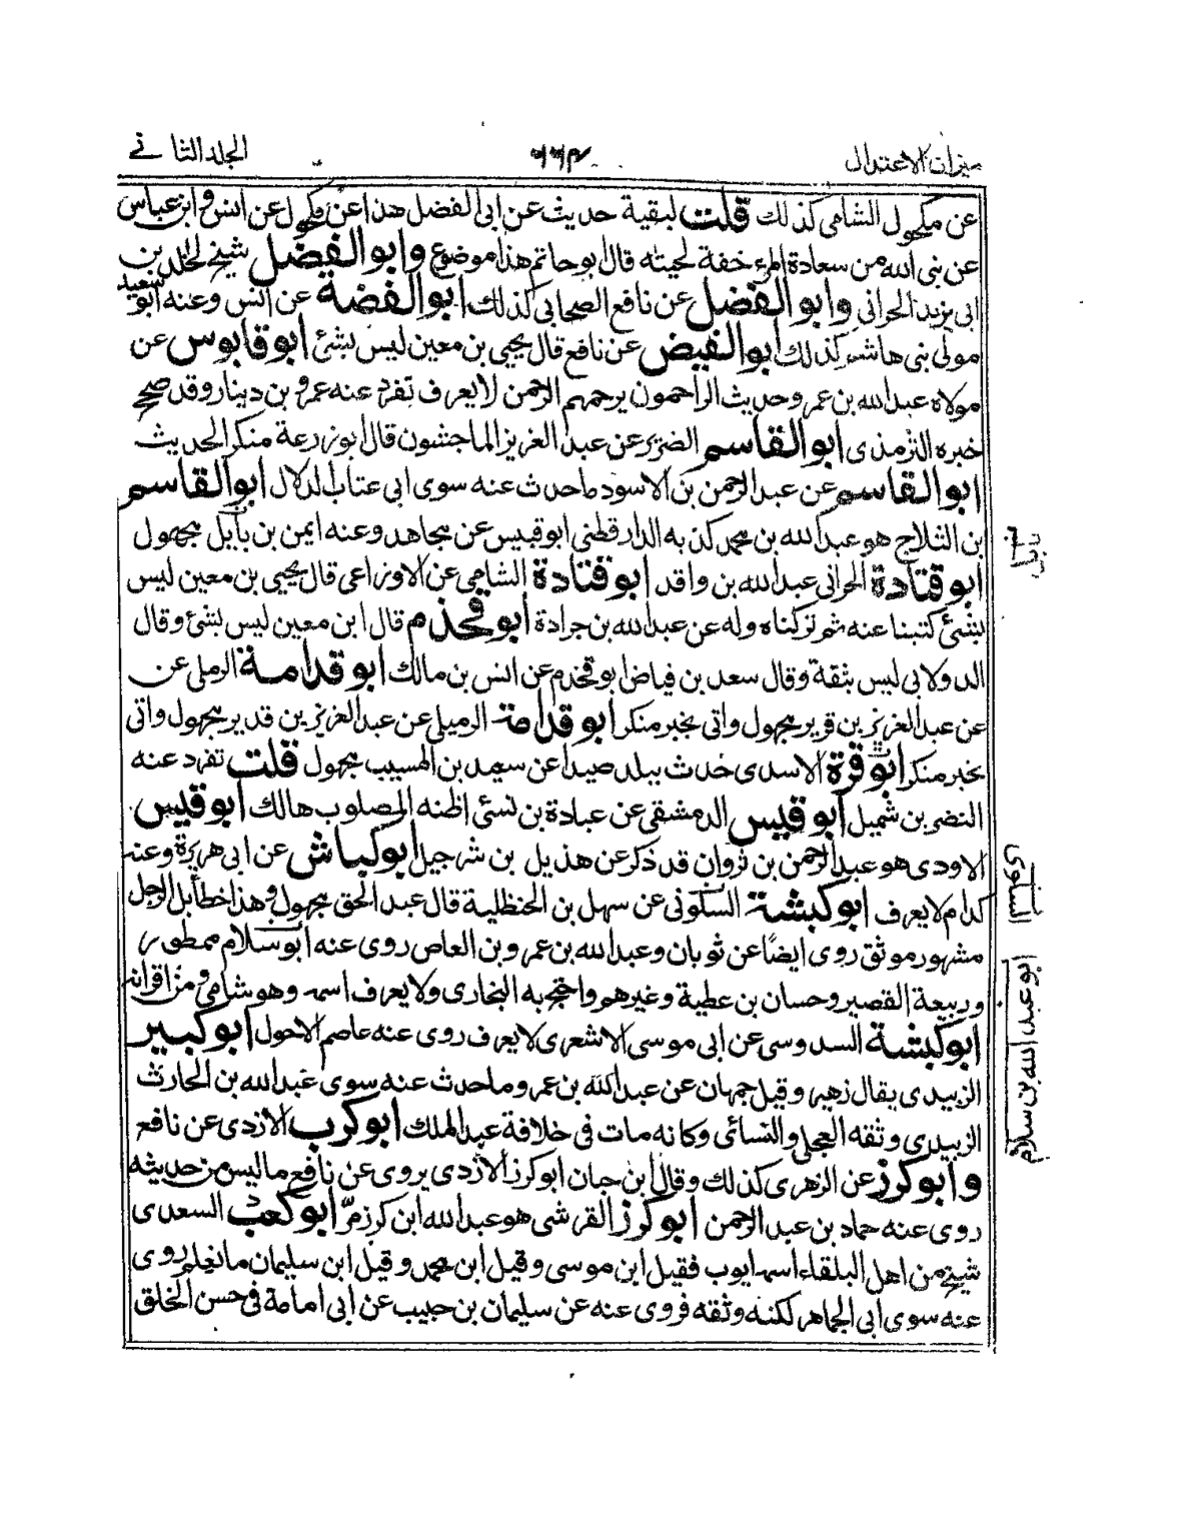 ميزان الاعتدال
الجلد الثاني
عن مكحول الشامي كذلك قلت لبقية حديث عن ابي الفضل هذا عن مكحول عن انس وابن عباس
عن نبي الله من سعادة المرء خفة لحيته قال ابو حاتم هذا موضوع وابو الفضل شيخ لخالد بن
ابي يزيد الحراني وابو الفضل عن نافع الصحابي كذلك ابو الفضة عن انس وعنه ابو سعيد
مولى بني هاشم كذلك ابو الفيض عن نافع قال يحيى بن معين ليس بشئ ابو قابوس عن
مولاه عبد الله بن عمر وحديث الراحمون يرحمهم الرحمن لا يعرف تفرد عنه عمرو بن دينار وقد صحح
خبره الترمذي ابو القاسم الضرير عن عبد العزيز الماجشون قال ابو زرعة منكر الحديث
ابو القاسم عن عبد الرحمن بن الاسود ما حدث عنه سوى ابي عتاب الدلال ابو القاسم
بن الثلاج هو عبد الله بن محمد كذبه الدارقطني ابو قبيس عن مجاهد وعنه ايمن بن بابل مجهول
ابو قتادة الحراني عبد الله بن واقد ابو قتادة الشامي عن الاوزاعي قال يحيى بن معين ليس
بشئ كتبنا عنه ثم تركناه وله عن عبد الله بن جرادة ابو قحذم قال ابن معين ليس بشئ وقال
الدولابي ليس بثقة وقال سعد بن فياض ابو قحذم عن انس بن مالك ابو قدامة الرملي عن
عن عبد العزيز بن قرير مجهول واتى بخبر منكر ابو قدامة الرميلي عن عبد العزيز بن قدير مجهول واتى
بخبر منكر ابو قرة الاسدي حدث ببلد صيدا عن سعيد بن المسيب مجهول قلت تفرد عنه
النضر بن شميل ابو قيس الدمشقي عن عبادة بن نسئ اظنه المصلوب هالك ابو قيس
الاودي هو عبد الرحمن بن ثروان قد ذكر عن هذيل بن شرجيل ابو كباش عن ابي هريرة وعنه
كدام لا يعرف ابو كبشة السكوني عن سهل بن الحنظلية قال عبد الحق مجهول وهذا خطأ بل الرجل
مشهور موثق روى ايضا عن ثوبان وعبد الله بن عمرو بن العاص روى عنه ابو سلام ممطور
وربيعة القصير وحسان بن عطية وغيرهم واحتج به البخاري ولا يعرف اسمه وهو شامي ومن اقرانه
ابو كبشة السدوسي عن ابي موسى الاشعري لا يعرف روى عنه عاصم الاحول ابو كبير
الزبيدي يقال زهير وقيل جمهان عن عبد الله بن عمر وما حدث عنه سوى عبد الله بن الحارث
الزبيدي وثقه العجلي والنسائي وكانه مات في خلافة عبد الملك ابو كرب الازدي عن نافع
وابو كرز عن الزهري كذلك وقال ابن حبان ابو كرز الازدي يروي عن نافع ما ليس من حديثه
روى عنه حماد بن عبد الرحمن ابو كرز القرشي هو عبد الله ابن كرز مر ابو كعب السعدي
شيخ من اهل البلقاء اسمه ايوب فقيل ابن موسى وقيل ابن محمد وقيل ابن سليمان ما نعلم روى
عنه سوى ابي الجماهر لكنه وثقه فروى عنه عن سليمان بن حبيب عن ابي امامة في حسن الخلق
ابو عبد الله بن سلام